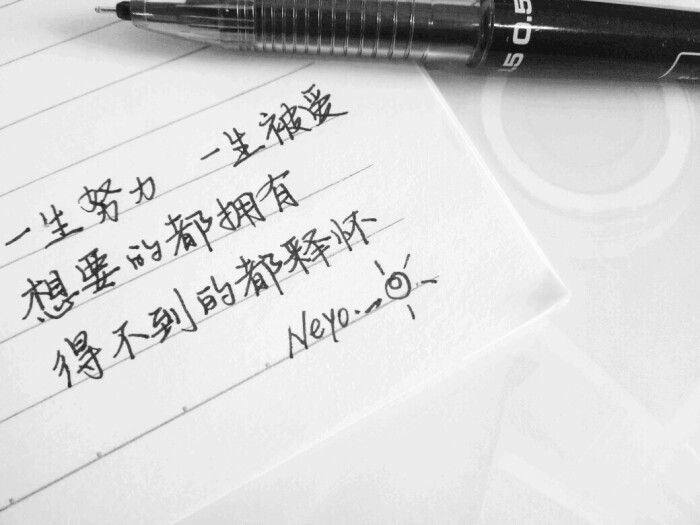 0.5
一生努力 一生被爱
想要的都拥有
得不到的都释怀
Neyo.